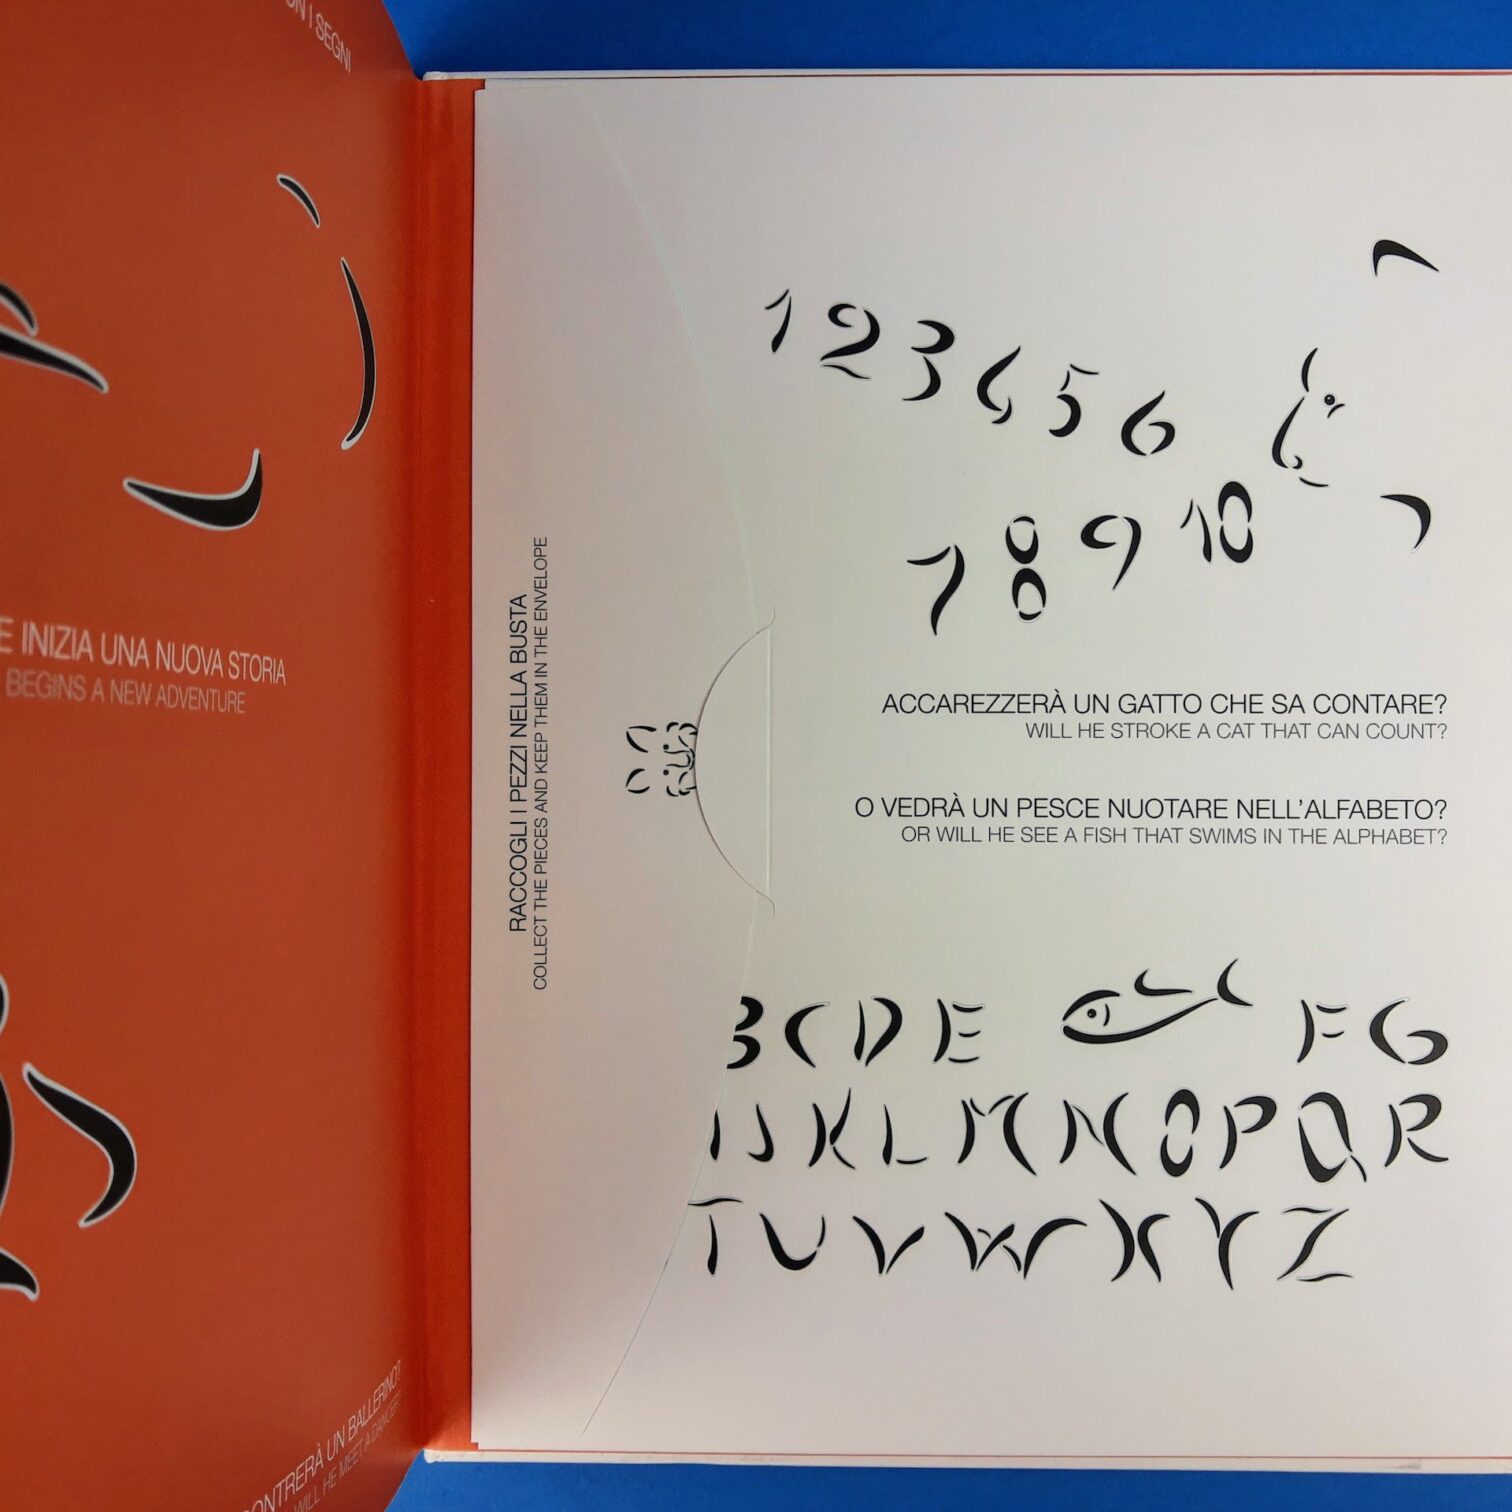 ON I SEGNI
E INIZIA UNA NUOVA STORIA
BEGINS A NEW ADVENTURE
ONTRERÀ UN BALLERINO?
WILL HE MEET A DANCER?
RACCOGLI I PEZZI NELLA BUSTA
COLLECT THE PIECES AND KEEP THEM IN THE ENVELOPE
1 2 3 4 5 6
7 8 9 10
ACCAREZZERÀ UN GATTO CHE SA CONTARE?
WILL HE STROKE A CAT THAT CAN COUNT?
O VEDRÀ UN PESCE NUOTARE NELL'ALFABETO?
OR WILL HE SEE A FISH THAT SWIMS IN THE ALPHABET?
B C D E F G
I J K L M N O P Q R
T U V W X Y Z